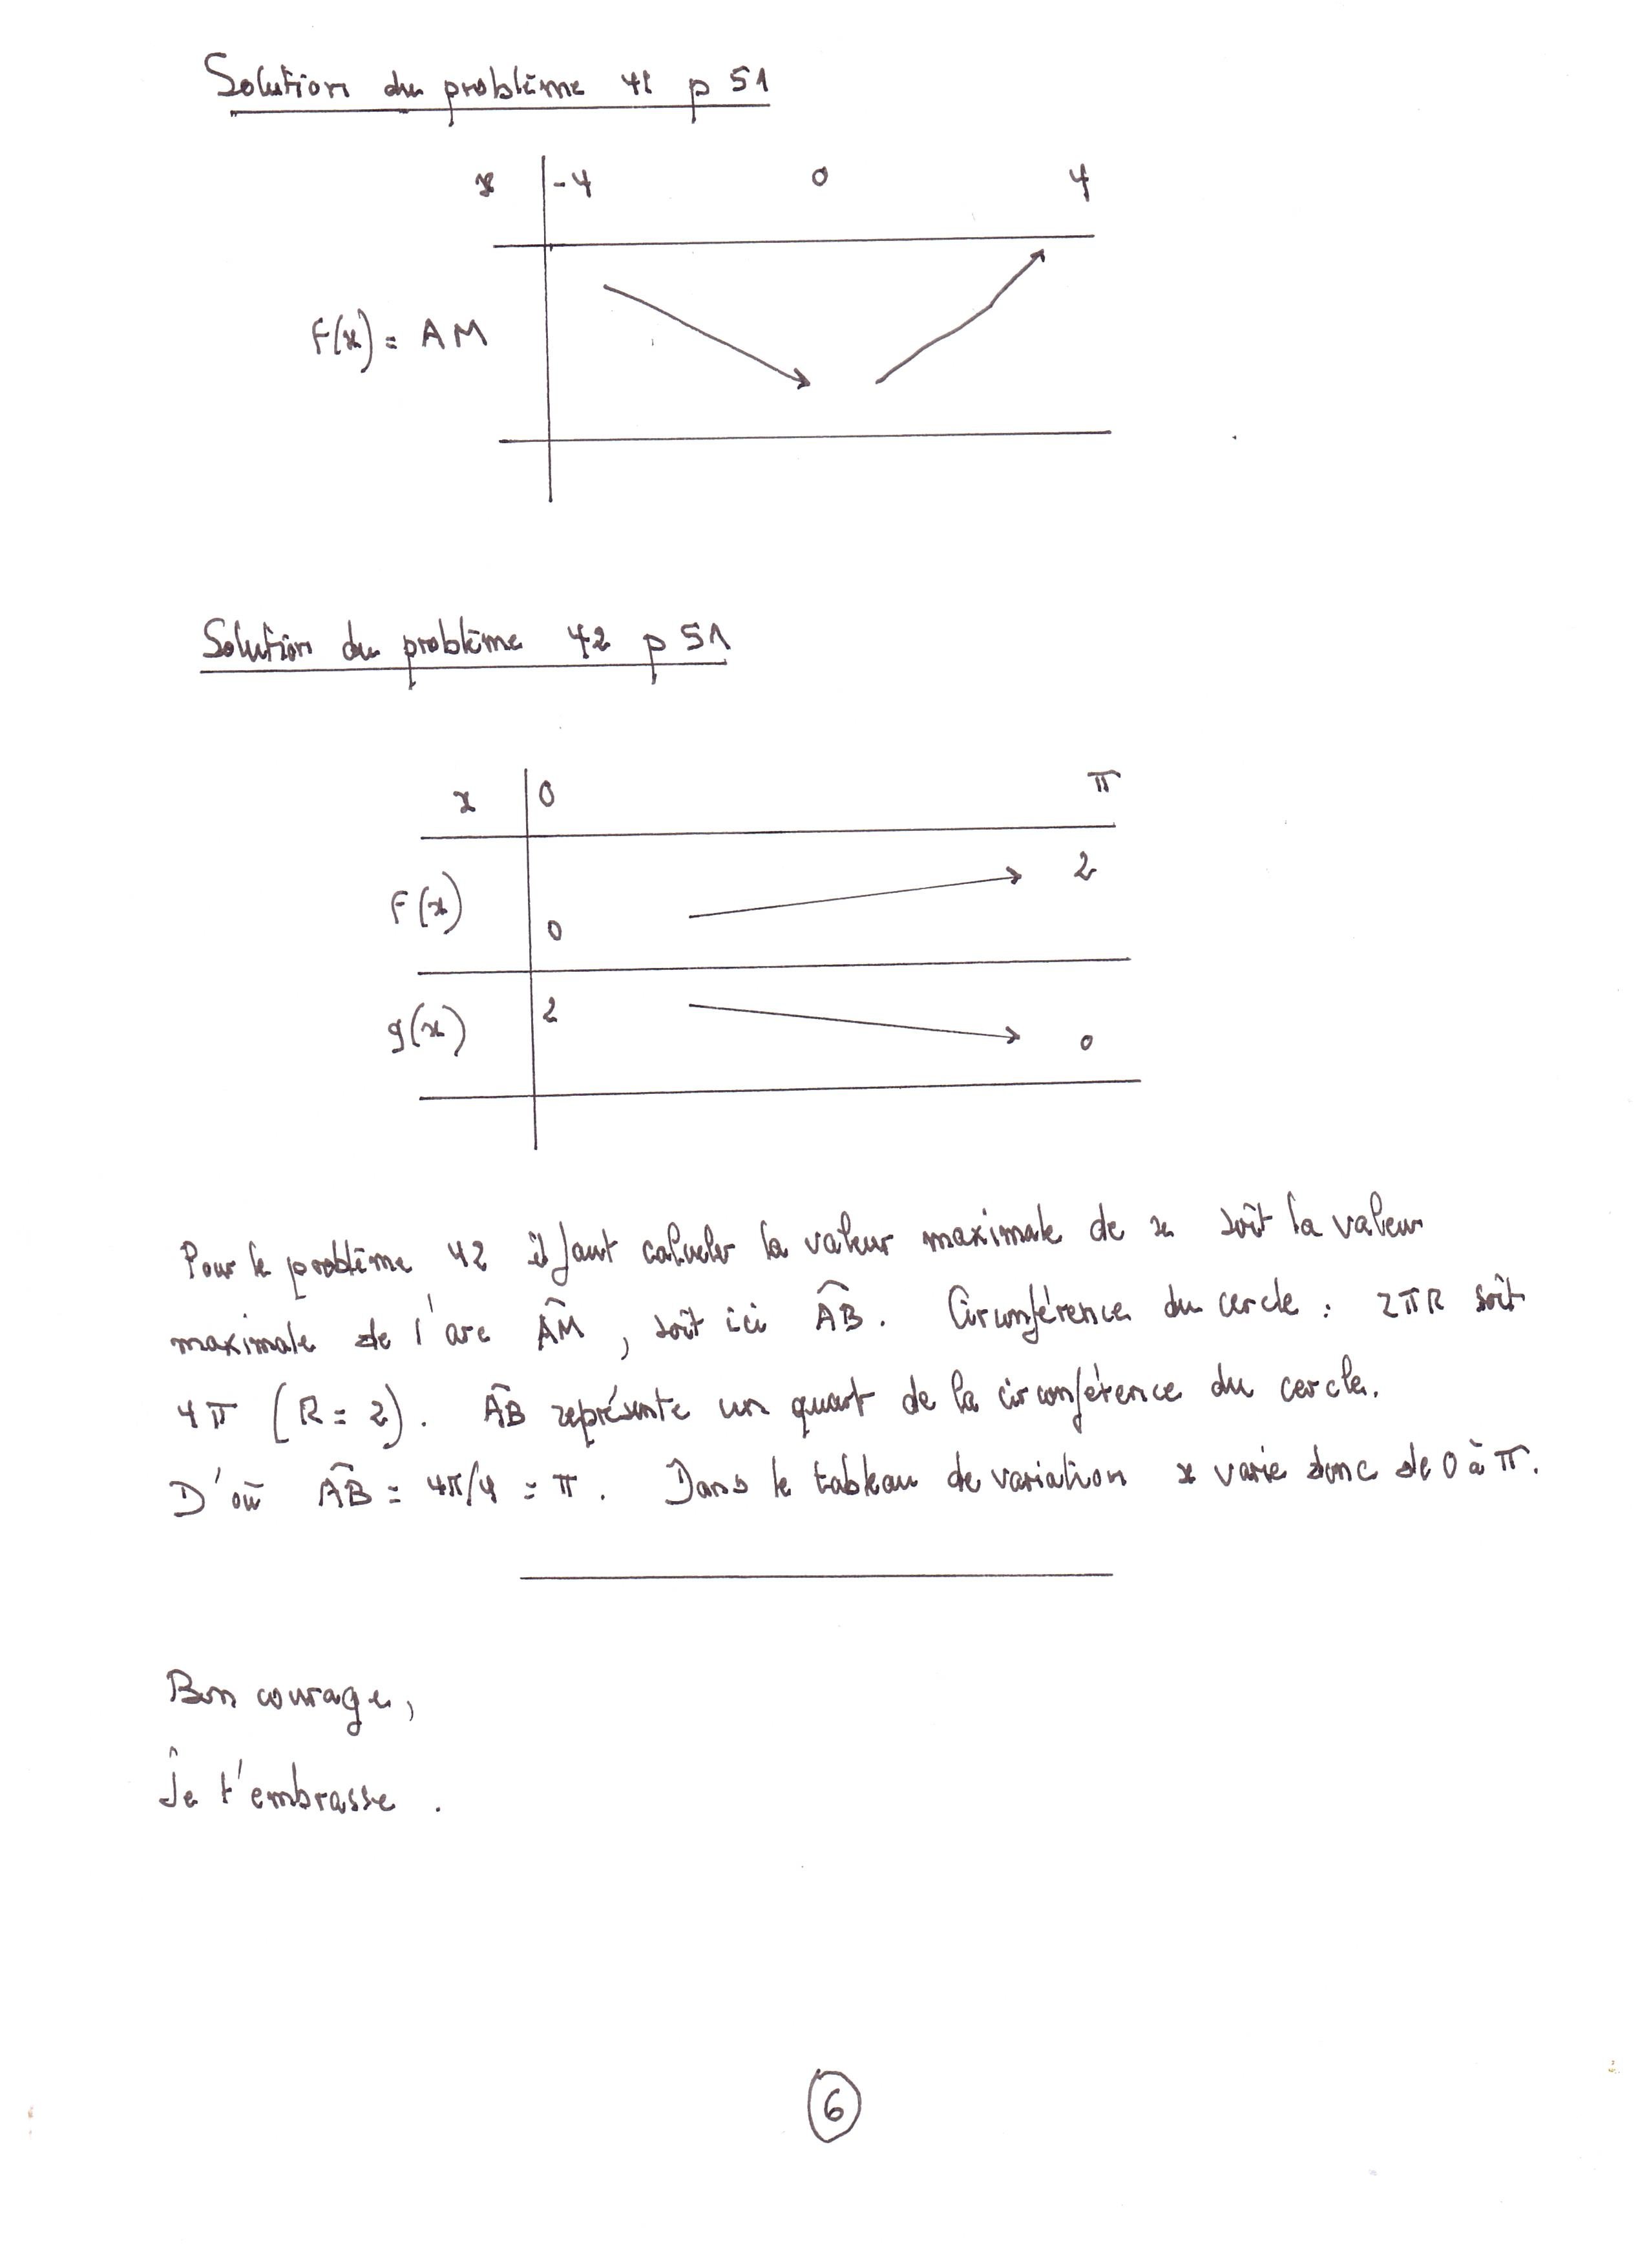 Solution du problème 41 p 51
x -4 0 4
F(x) = AM
Solution du problème 42 p 51
x 0 π
F(x) 0 2
g(x) 2 0
Pour le problème 42 il faut calculer la valeur maximale de x soit la valeur
maximale de l'arc A͡M, soit ici A͡B. Circonférence du cercle : 2πR soit
4π (R = 2). A͡B représente un quart de la circonférence du cercle.
D'où A͡B = 4π/4 = π. Dans le tableau de variation x varie donc de 0 à π.
Bon courage,
Je t'embrasse.
6